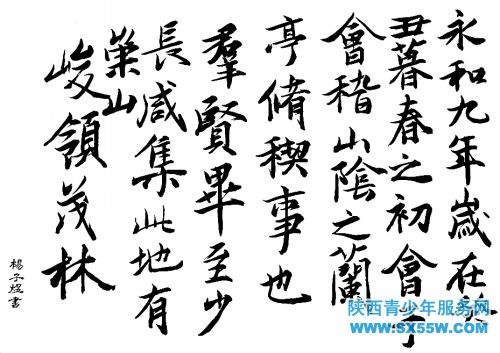 永和九年歲在癸
丑暮春之初會于
會稽山陰之蘭
亭脩稧事也
羣賢畢至少
長咸集此地有
崇山
峻領茂林
楊子書
陕西青少年服务网
www.sx55w.com